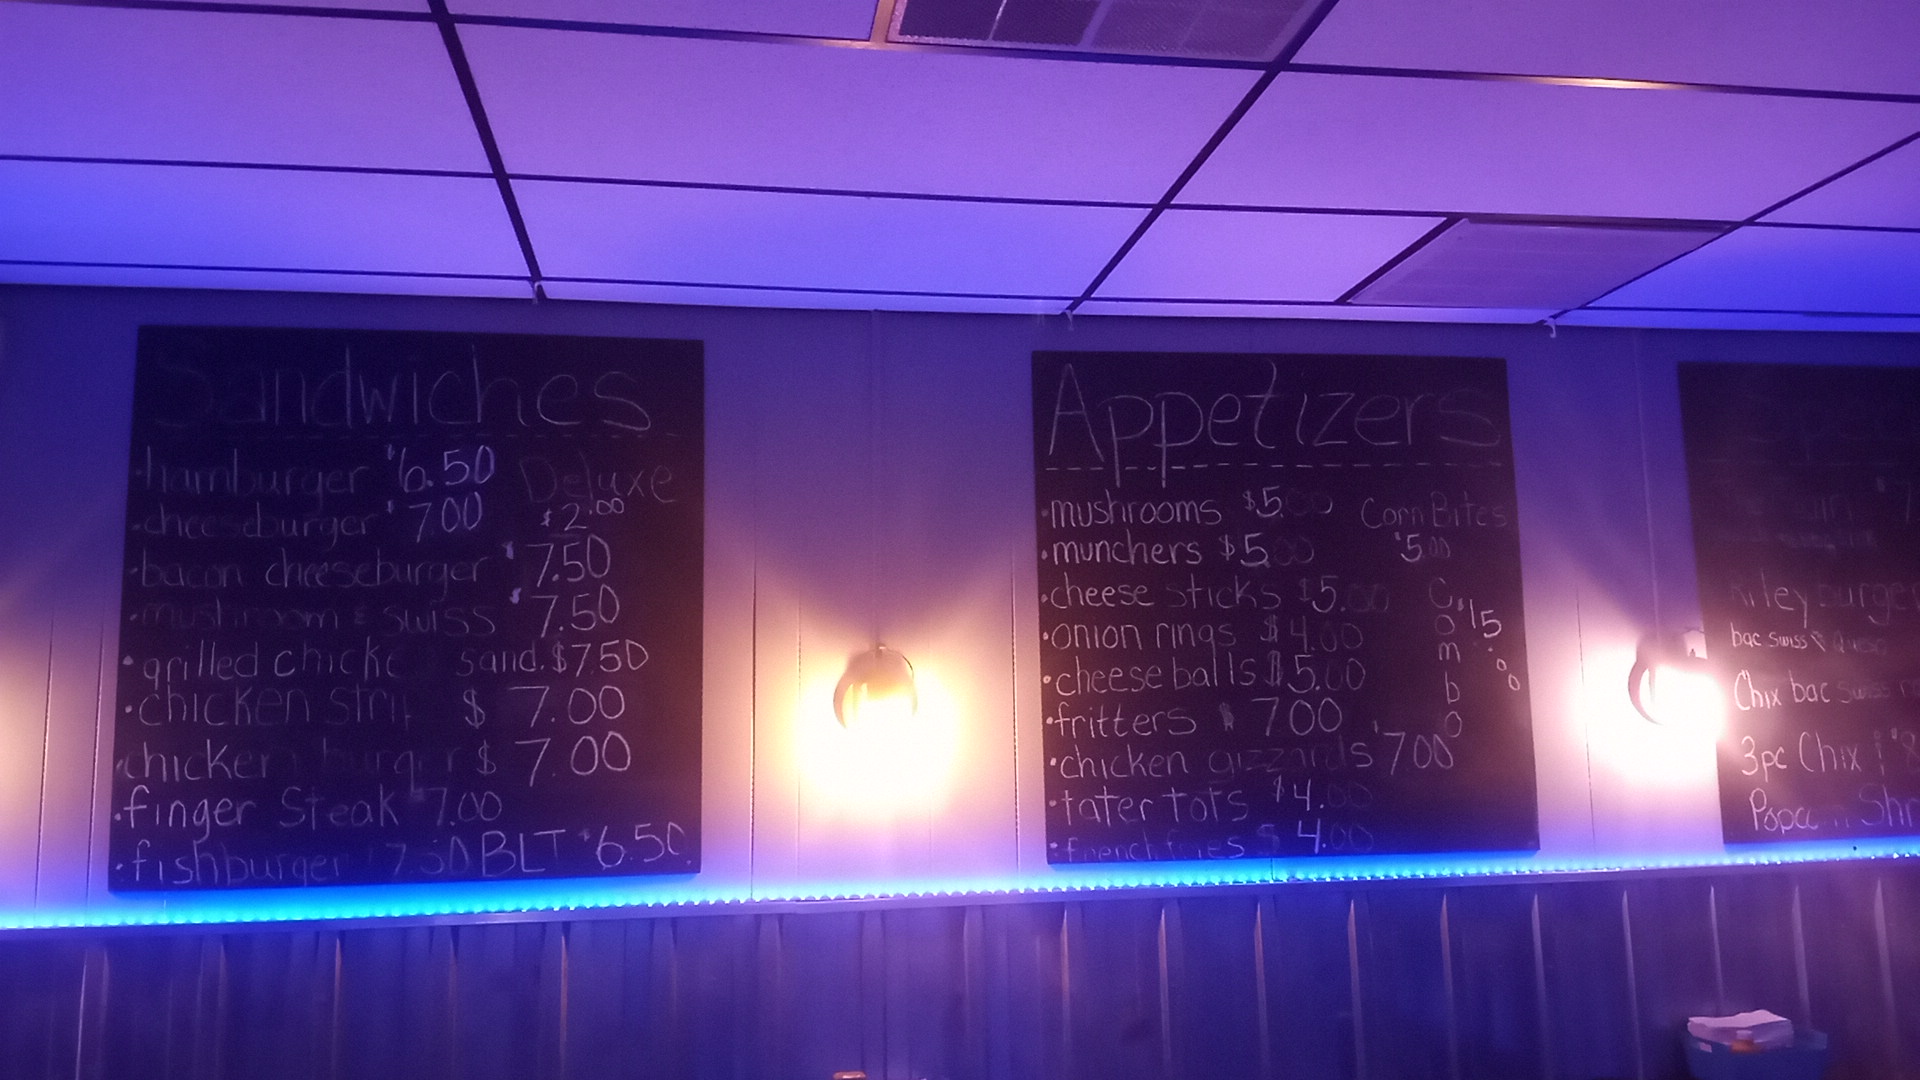 Sandwiches
·hamburger $6.50 Deluxe
·cheeseburger $7.00 $2.00
·bacon cheeseburger $7.50
·mushroom & swiss $7.50
·grilled chicke sand. $7.50
·chicken strip $7.00
·chicken burger $7.00
·finger Steak 7.00
·fishburger 7.50 BLT $6.50
Appetizers
·mushrooms $5.00 Corn Bites
·munchers $5.00 $5.00
·cheese sticks $5.00
·onion rings $4.00
·cheese balls $5.00
·fritters $7.00
·chicken gizzards $7.00
·tater tots $4.00
·french fries $4.00
Combo $15.00
Riley burger
bac swiss &
Chix bac swiss
3pc Chix $8
Popcorn Shr